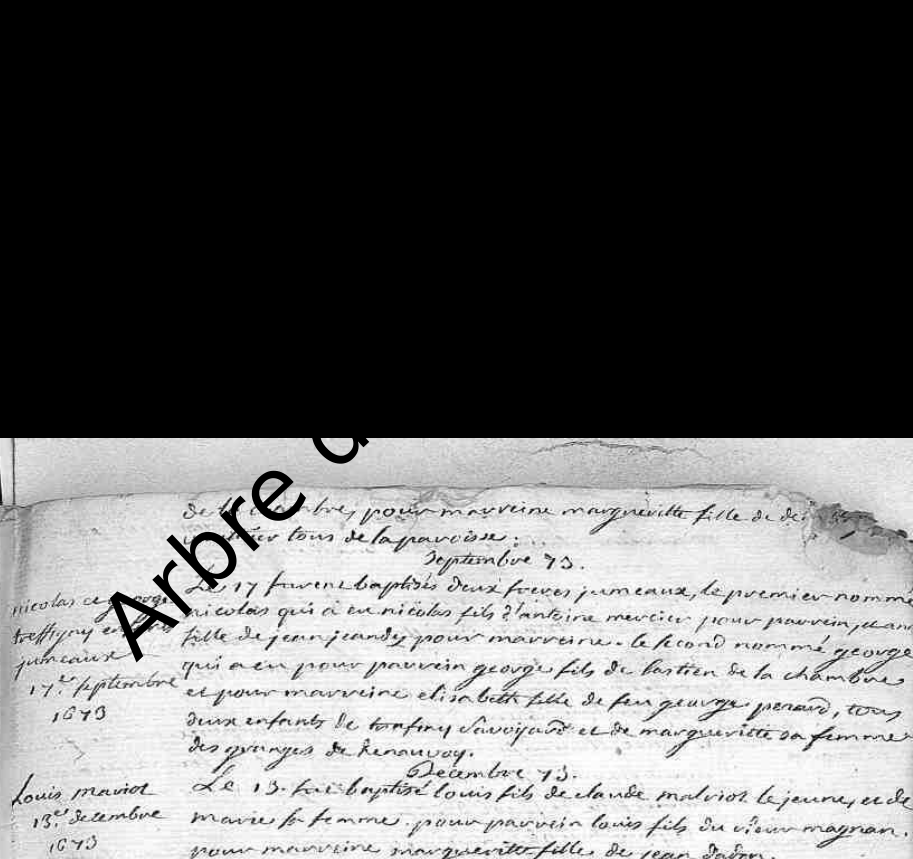 Arbre d
de la chambre, pour marreine margueritte fille de
tous de la paroisse.
Septembre 73.
nicolas et george
treffigny
jumeaux
17.e septembre
1673
Le 17 furent baptisés deux freres jumeaux, le premier nommé
nicolas qui a eu nicolas fils d'antoine mercier pour parrein, jeanne
fille de jean jeandy pour marreine. le second nommé george
qui a eu pour parrein george fils de bastien de la chambre
et pour marreine elisabeth fille de feu george perard, tous
deux enfants de savoyard et de margueritte sa femme
des granges de Renauvoy.
Decembre 73.
Louis maviot
13.e decembre
1673
Le 13. fut baptisé louis fils de claude malviot le jeune, et de
marie sa femme. pour parrein louis fils du vieux magnan.
pour marreine margueritte fille de jean